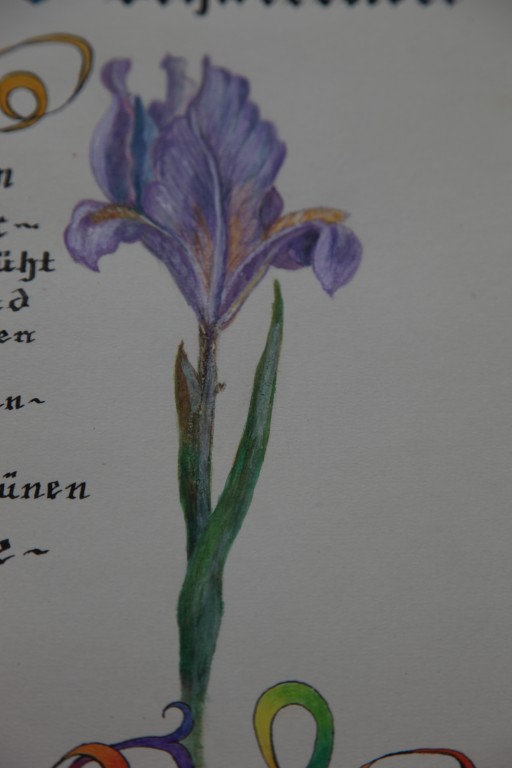 n
t~
üht
nd
en
n~
ünen
e~